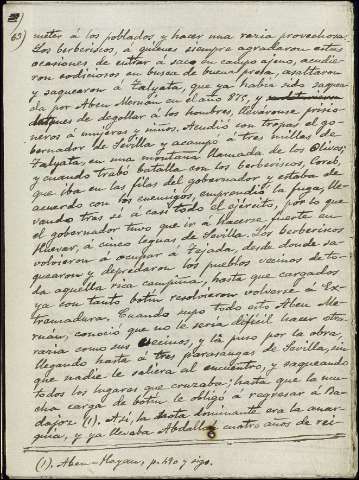 63)
meter á los poblados y hacer una razia provechosa.
Los berberiscos, á quienes siempre agradaron estas
ocasiones, de entrar á saco en campo ajeno, acudie-
ron codiciosos en busca de buena presa, asaltaron
y saquearon á Talyata, que ya había sido saquea-
da por Aben Meruan en el año 875, y
despues de degollar á los hombres, lleváronse prisio-
neros á mujeres y niños. Acudió con tropas el go-
bernador de Sevilla y acampó á tres millas de
Talyata, en una montaña llamada de los Olivos;
y cuando trabó batalla con los berberiscos, Coreb,
que iba en las filas del gobernador y estaba de
acuerdo con los enemigos, emprendió la fuga, lle-
vando tras sí á casi todo el ejército, por lo que
el gobernador tuvo que ir á hacerse fuerte en
Huevar, á cinco leguas de Sevilla. Los berberiscos
volvieron á ocupar á Tejada, desde donde sa-
quearon y depredaron los pueblos vecinos de to-
da aquella rica campiña, hasta que cargados
ya con tanto botin resolvieron volverse á Ex-
tremadura. Cuando supo todo esto Aben Me-
ruán, conoció que no le sería difícil hacer otra
razia como sus vecinos, y la puso por la obra,
llegando hasta á tres parasangas de Sevilla, sin
que nadie le saliera al encuentro, y saqueando
todos los lugares que cruzaba; hasta que la mu-
cha carga de botin le obligó á regresar á Ba-
dajoz (1). Así, la nota dominante era la anar-
quía, y ya llevaba Abdalla cuatro años de rei-
(1). Aben-Hayan, p. 490 y sigs.